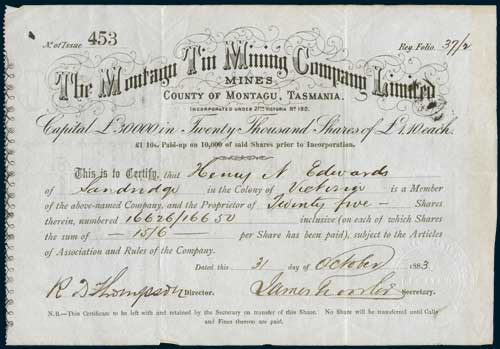 No. of Issue 453 Reg. Folio. 37/2
The Montagu Tin Mining Company Limited
MINES
COUNTY OF MONTAGU, TASMANIA.
INCORPORATED UNDER 27TH VICTORIA No. 190.
Capital £30000 in Twenty Thousand Shares of £1.10 each.
£1 10s. Paid-up on 10,000 of said Shares prior to Incorporation.
This is to Certify, that Henry N Edwards
of Sandridge in the Colony of Victoria is a Member
of the above-named Company, and the Proprietor of Twenty five — Shares
therein, numbered 16626/16650 inclusive (on each of which Shares
the sum of — 15/6 — per Share has been paid), subject to the Articles
of Association and Rules of the Company.
Dated this 31 day of October 1883
R D Thompson Director. James Secretary.
N.B.—This Certificate to be left with and retained by the Secretary on transfer of this Share. No Share will be transferred until Calls
and Fines thereon are paid.